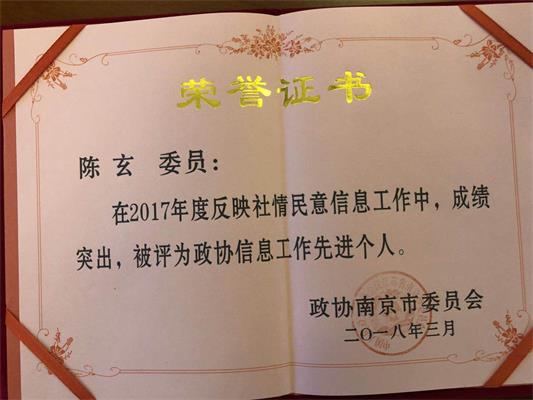 荣誉证书
陈玄 委员：
在2017年度反映社情民意信息工作中，成绩
突出，被评为政协信息工作先进个人。
政协南京市委员会
二〇一八年三月